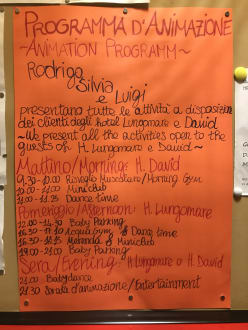 PROGRAMMA D'ANIMAZIONE
~ANIMATION PROGRAMM~
Rodrigo
Silvia
e Luigi
presentano tutte le attività a disposizion
dei clienti degli hotel Lungomare e David
~We present all the activities open to the
guests of H. Lungomare e David~
Mattino/Morning: H. David
9.30 - 10.00 Risveglio Muscolare/Morning Gym
10.00 - 11.00 Miniclub
11.00 - 11.25 Dance time
Pomeriggio/Afternoon: H. Lungomare
Baby Parking
Acqua Gym Dance time
Merenda Miniclub
Baby Parking
Sera/Evening: H. Lungomare o H. David
21.00 Babydance
21.30 Serata d'animazione/Entertainment